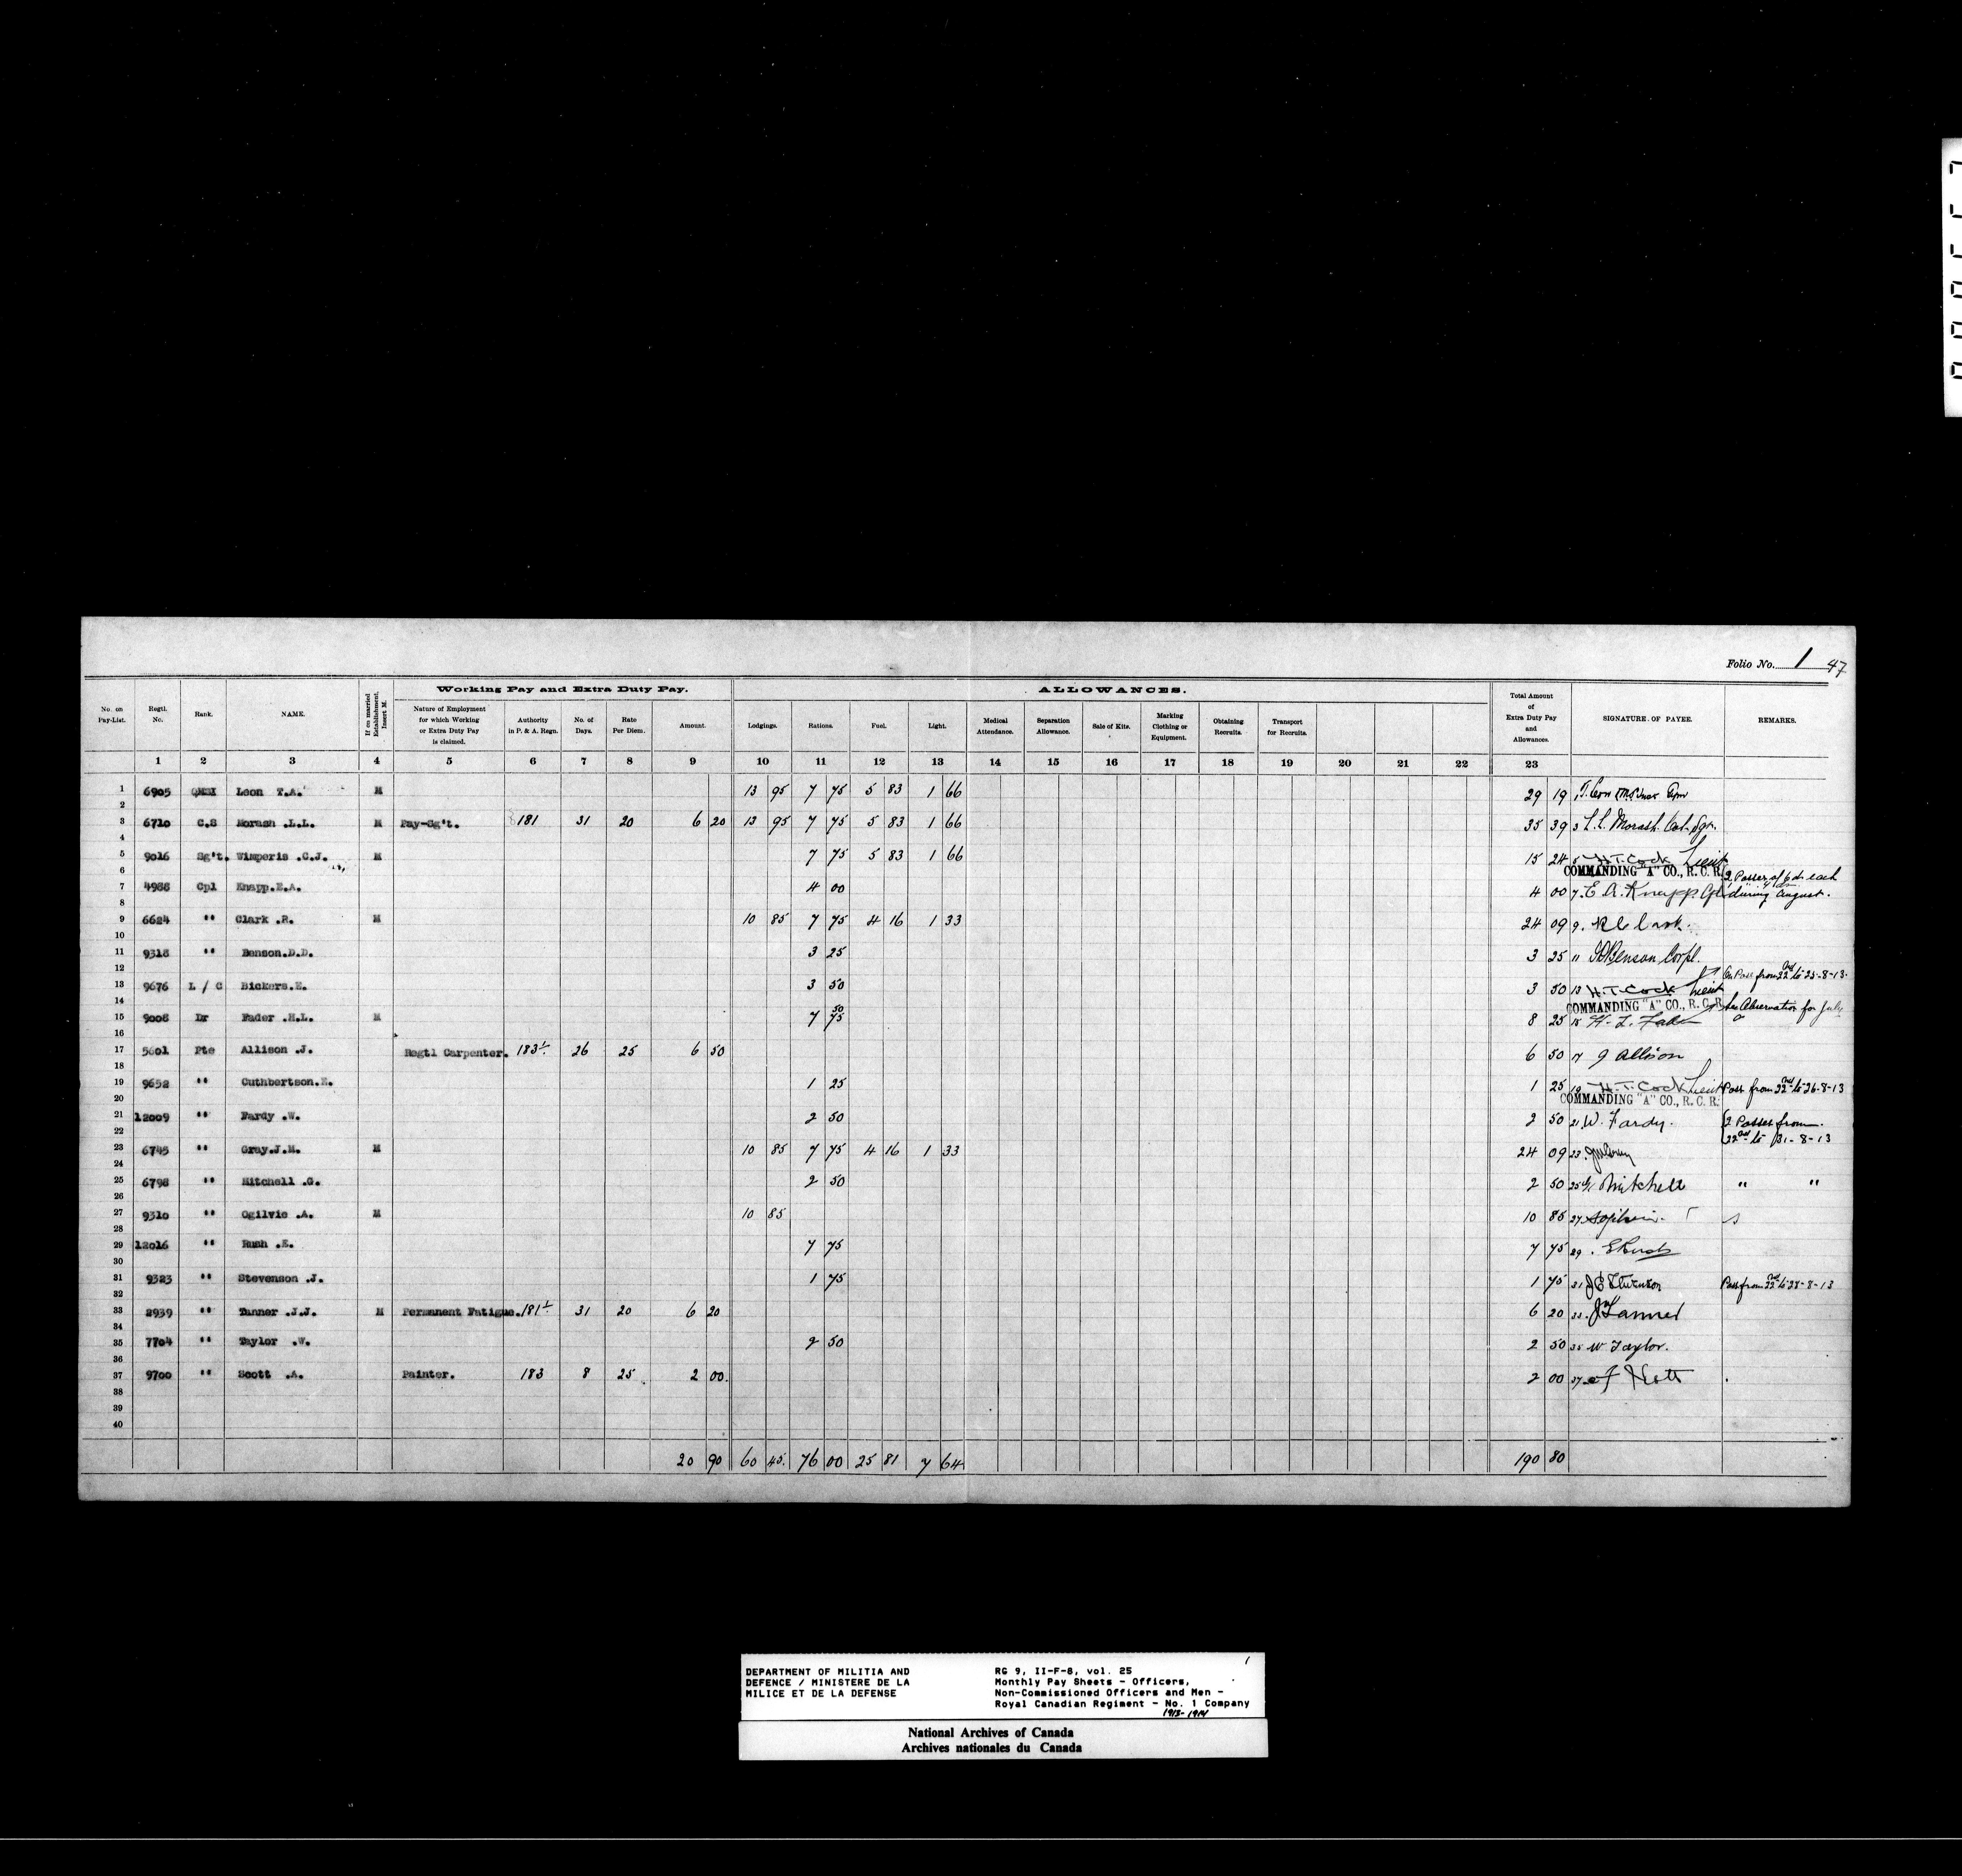 Folio No. 1 47
Working Pay and Extra Duty Pay. ALLOWANCES.
No. on Pay-List. Regtl. No. Rank. NAME. If on married Establishment. Insert M. Nature of Employment for which Working or Extra Duty Pay is claimed. Authority in P. & A. Regn. No. of Days. Rate Per Diem. Amount. Lodgings. Rations. Fuel. Light. Medical Attendance. Separation Allowance. Sale of Kits. Marking Clothing or Equipment. Obtaining Recruits. Transport for Recruits. Total Amount of Extra Duty Pay and Allowances. SIGNATURE OF PAYEE. REMARKS.
1 2 3 4 5 6 7 8 9 10 11 12 13 14 15 16 17 18 19 20 21 22 23
1 6905 QMSI Leon T.A. M 13 95 7 75 5 83 1 66 29 19
2
3 6710 C.S Morash .L.L. M Pay-Sg't. 181 31 20 6 20 13 95 7 75 5 83 1 66 35 39 3 L.L. Morash. Col. Sgt.
4
5 9016 Sg't. Wimperis .C.J. M 7 75 5 83 1 66 15 24 5 H.T. Cock Lieut
6 COMMANDING "A" CO., R. C. R. 2 Passes of 6 ds each
7 4988 Cpl Knapp.E.A. 4 00 4 00 7. E. A. Knapp. Cpl during August.
8
9 6624 " Clark .R. M 10 85 7 75 4 16 1 33 24 09 9. R Clark.
10
11 9318 " Benson.D.D. 3 25 3 25 11 DDBenson Corpl.
12 On Pass from 22nd to 25-8-13.
13 9676 L / C Bickers.E. 3 50 3 50 13 H.T. Cock Lieut
14 COMMANDING "A" CO., R. C. R. See Observation for July
15 9008 Dr Fader .H.L. M 7 75 50 8 25 15 H. L. Fader
16
17 5601 Pte Allison .J. Regtl Carpenter. 183 26 25 6 50 6 50 17 J Allison
18
19 9652 " Cuthbertson.E. 1 25 1 25 19 H.T. Cock Lieut Pass from 22nd to 26-8-13
20 COMMANDING "A" CO., R. C. R.
21 12009 " Fardy .W. 2 50 2 50 21. W. Fardy. 2 Passes from
22 22nd to 31-8-13
23 6745 " Gray.J.M. M 10 85 7 75 4 16 1 33 24 09 23. JMGray
24
25 6798 " Mitchell .G. 2 50 2 50 25 G Mitchell " "
26
27 9310 " Ogilvie .A. M 10 85 10 85 27 AOgilvie.
28
29 12016 " Rush .E. 7 75 7 75 29 . ERush
30
31 9323 " Stevenson .J. 1 75 1 75 31 Stevenson Pass from 22nd to 28-8-13
32
33 2939 " Tanner .J.J. M Permanent Fatigue. 181 31 20 6 20 6 20 33. Tanner
34
35 7704 " Taylor .W. 2 50 2 50 35 W Taylor.
36
37 9700 " Scott .A. Painter. 183 8 25 2 00. 2 00 37
38
39
40
20 90 60 45. 76 00 25 81 7 64 190 80
DEPARTMENT OF MILITIA AND
DEFENCE / MINISTERE DE LA
MILICE ET DE LA DEFENSE
RG 9, II-F-8, vol. 25
Monthly Pay Sheets - Officers,
Non-Commissioned Officers and Men -
Royal Canadian Regiment - No. 1 Company
1913-1914
1
National Archives of Canada
Archives nationales du Canada